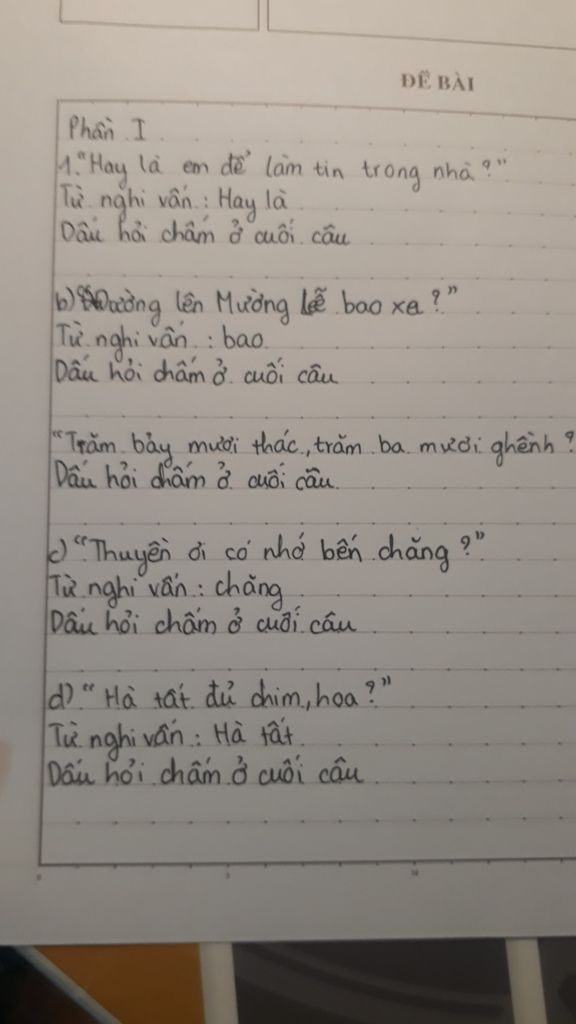 ĐỀ BÀI
Phần I
1. "Hay là em để làm tin trong nhà?"
Từ nghi vấn : Hay là
Dấu hỏi chấm ở cuối câu
b) "Đường lên Mường Lễ bao xa?"
Từ nghi vấn : bao
Dấu hỏi chấm ở cuối câu
"Trăm bảy mươi thác, trăm ba mươi ghềnh?
Dấu hỏi chấm ở cuối câu
c) "Thuyền ơi có nhớ bến chăng?"
Từ nghi vấn : chăng
Dấu hỏi chấm ở cuối câu
d) "Hà tất đủ chim, hoa?"
Từ nghi vấn : Hà tất
Dấu hỏi chấm ở cuối câu
0 5 10